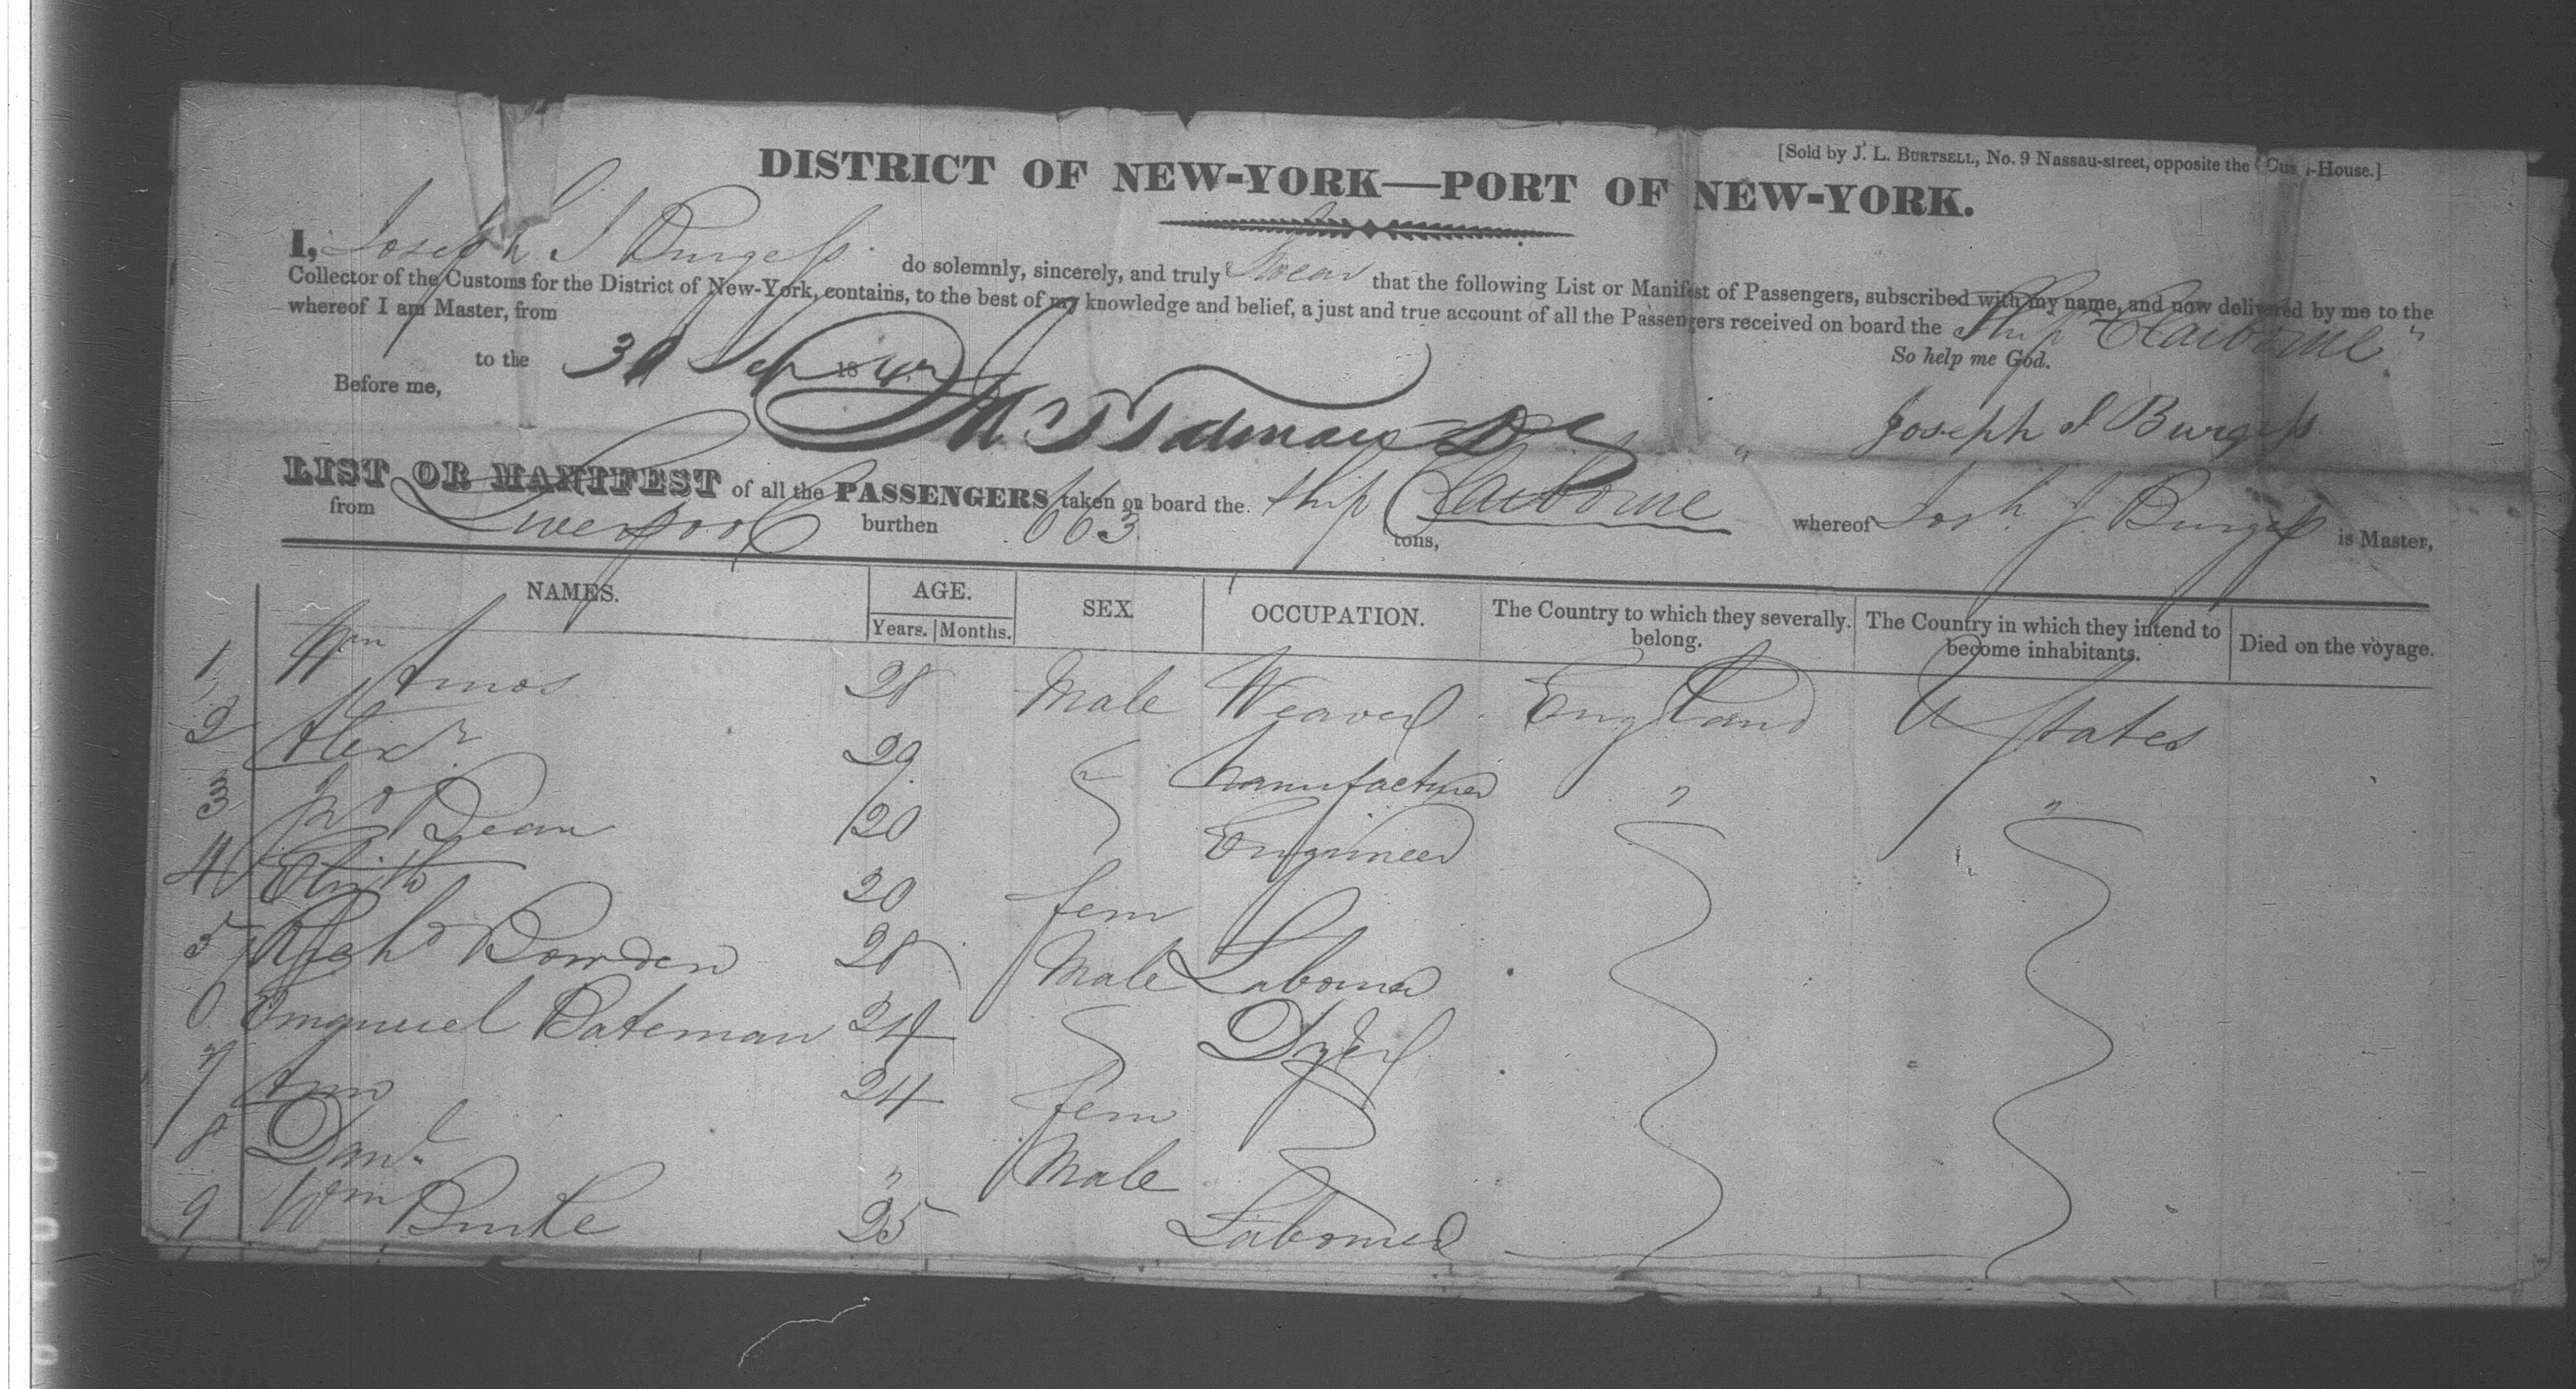 [Sold by J. L. BURTSELL, No. 9 Nassau-street, opposite the Cus -House.]
DISTRICT OF NEW-YORK—PORT OF NEW-YORK.
I, Joseph J Burgess do solemnly, sincerely, and truly Swear that the following List or Manifest of Passengers, subscribed with my name, and now delivered by me to the
Collector of the Customs for the District of New-York, contains, to the best of my knowledge and belief, a just and true account of all the Passengers received on board the Ship "Claiborne"
whereof I am Master, from
So help me God.
to the 30 Sep 184
Before me,
Joseph J Burgess
LIST OR MANIFEST of all the PASSENGERS taken on board the ship Claiborne whereof Josh J Burgess is Master,
from Liverpool burthen 663 tons,
NAMES. AGE. SEX OCCUPATION. The Country to which they severally belong. The Country in which they intend to become inhabitants. Died on the voyage.
Years. Months.
1 Wm Amos 28 Male Weaver England U States
2 Alexr 29 Manufacturer " "
3 Jno Dean 20 Engineer
4 Elizth 20 fem
5 Richd Bowden 28 Male Labourer
6 Emanuel Bateman 24 Dyer
7 Ann 24 fem
8 Danl " Male
9 Wm Burke 25 Labourer